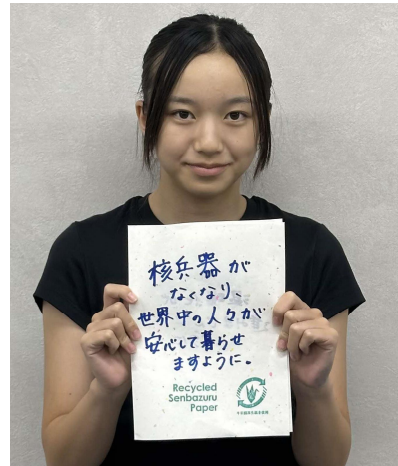 核兵器が
なくなり
世界中の人々が
安心して暮らせ
ますように。
Recycled
Senbazuru
Paper